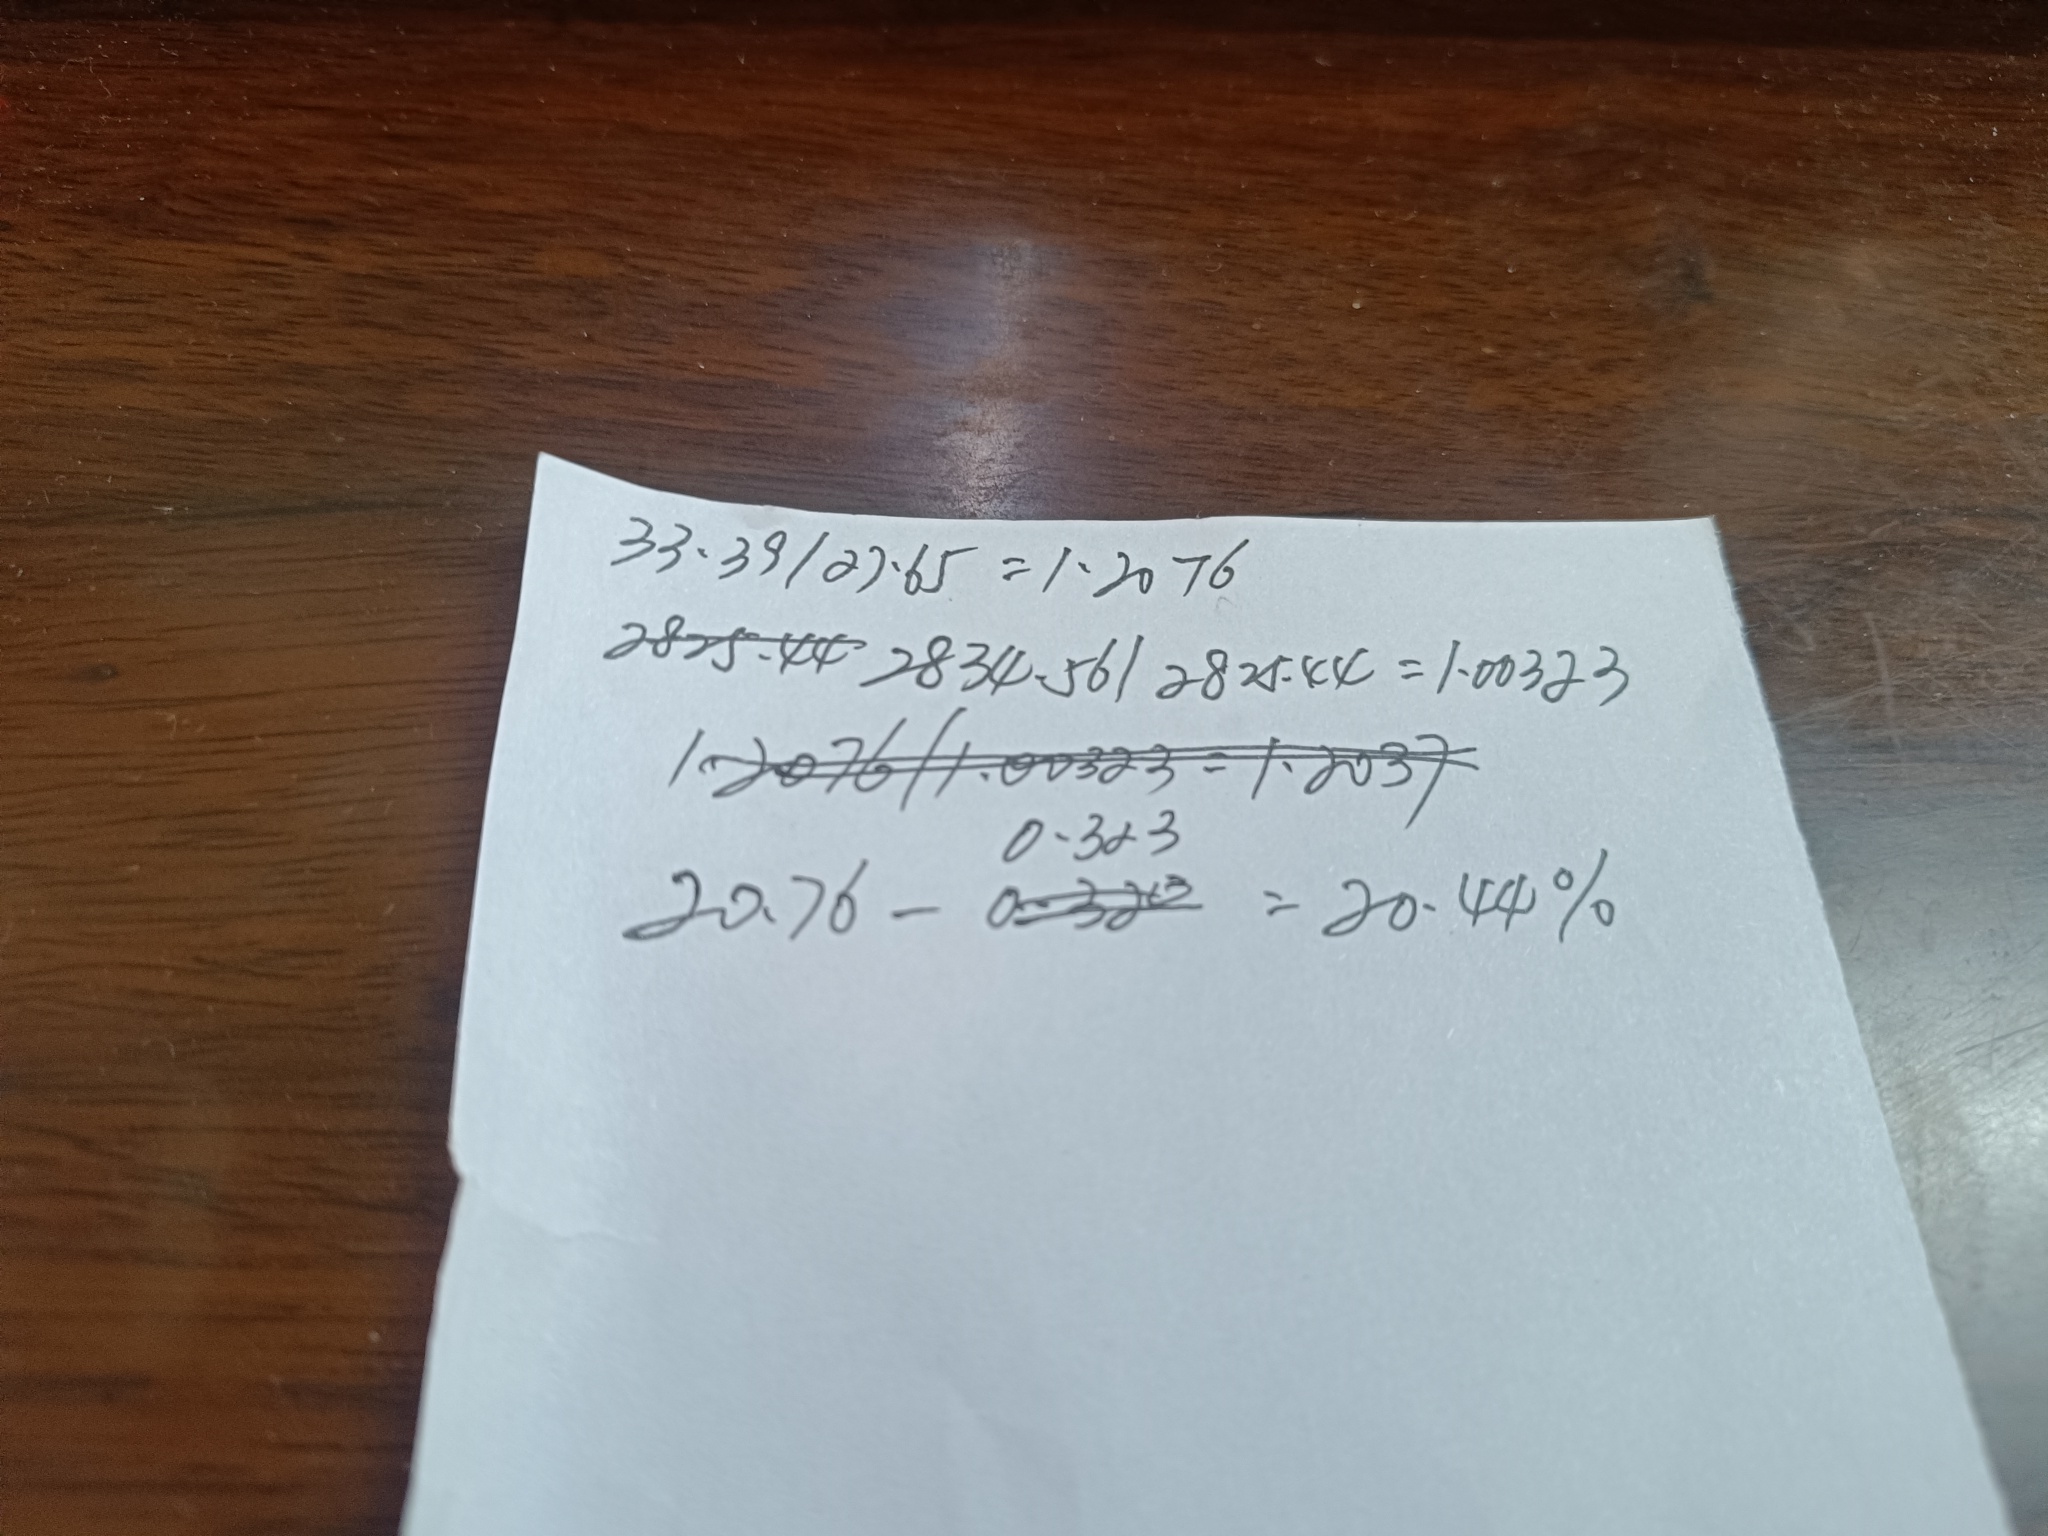 33.39/27.65=1.2076
2825.44 2834.56/2825.44=1.00323
1.2076/1.00323=1.2037
0.323
20.76-0.323=20.44%